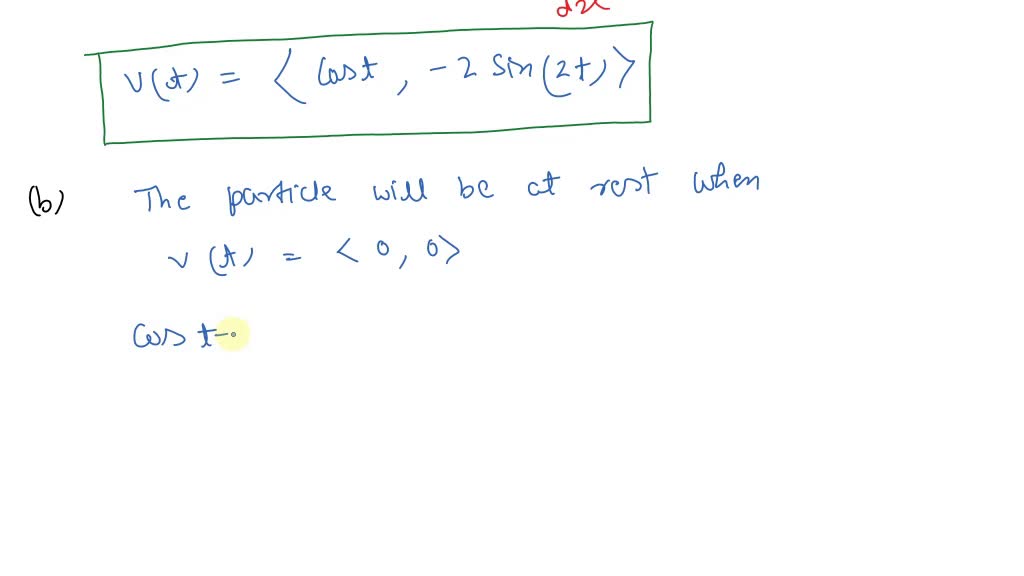 dx
v(t) = < Cost , - 2 Sin(2t) >
(b) The particle will be at rest when
v (t) = < 0, 0>
Cos t-